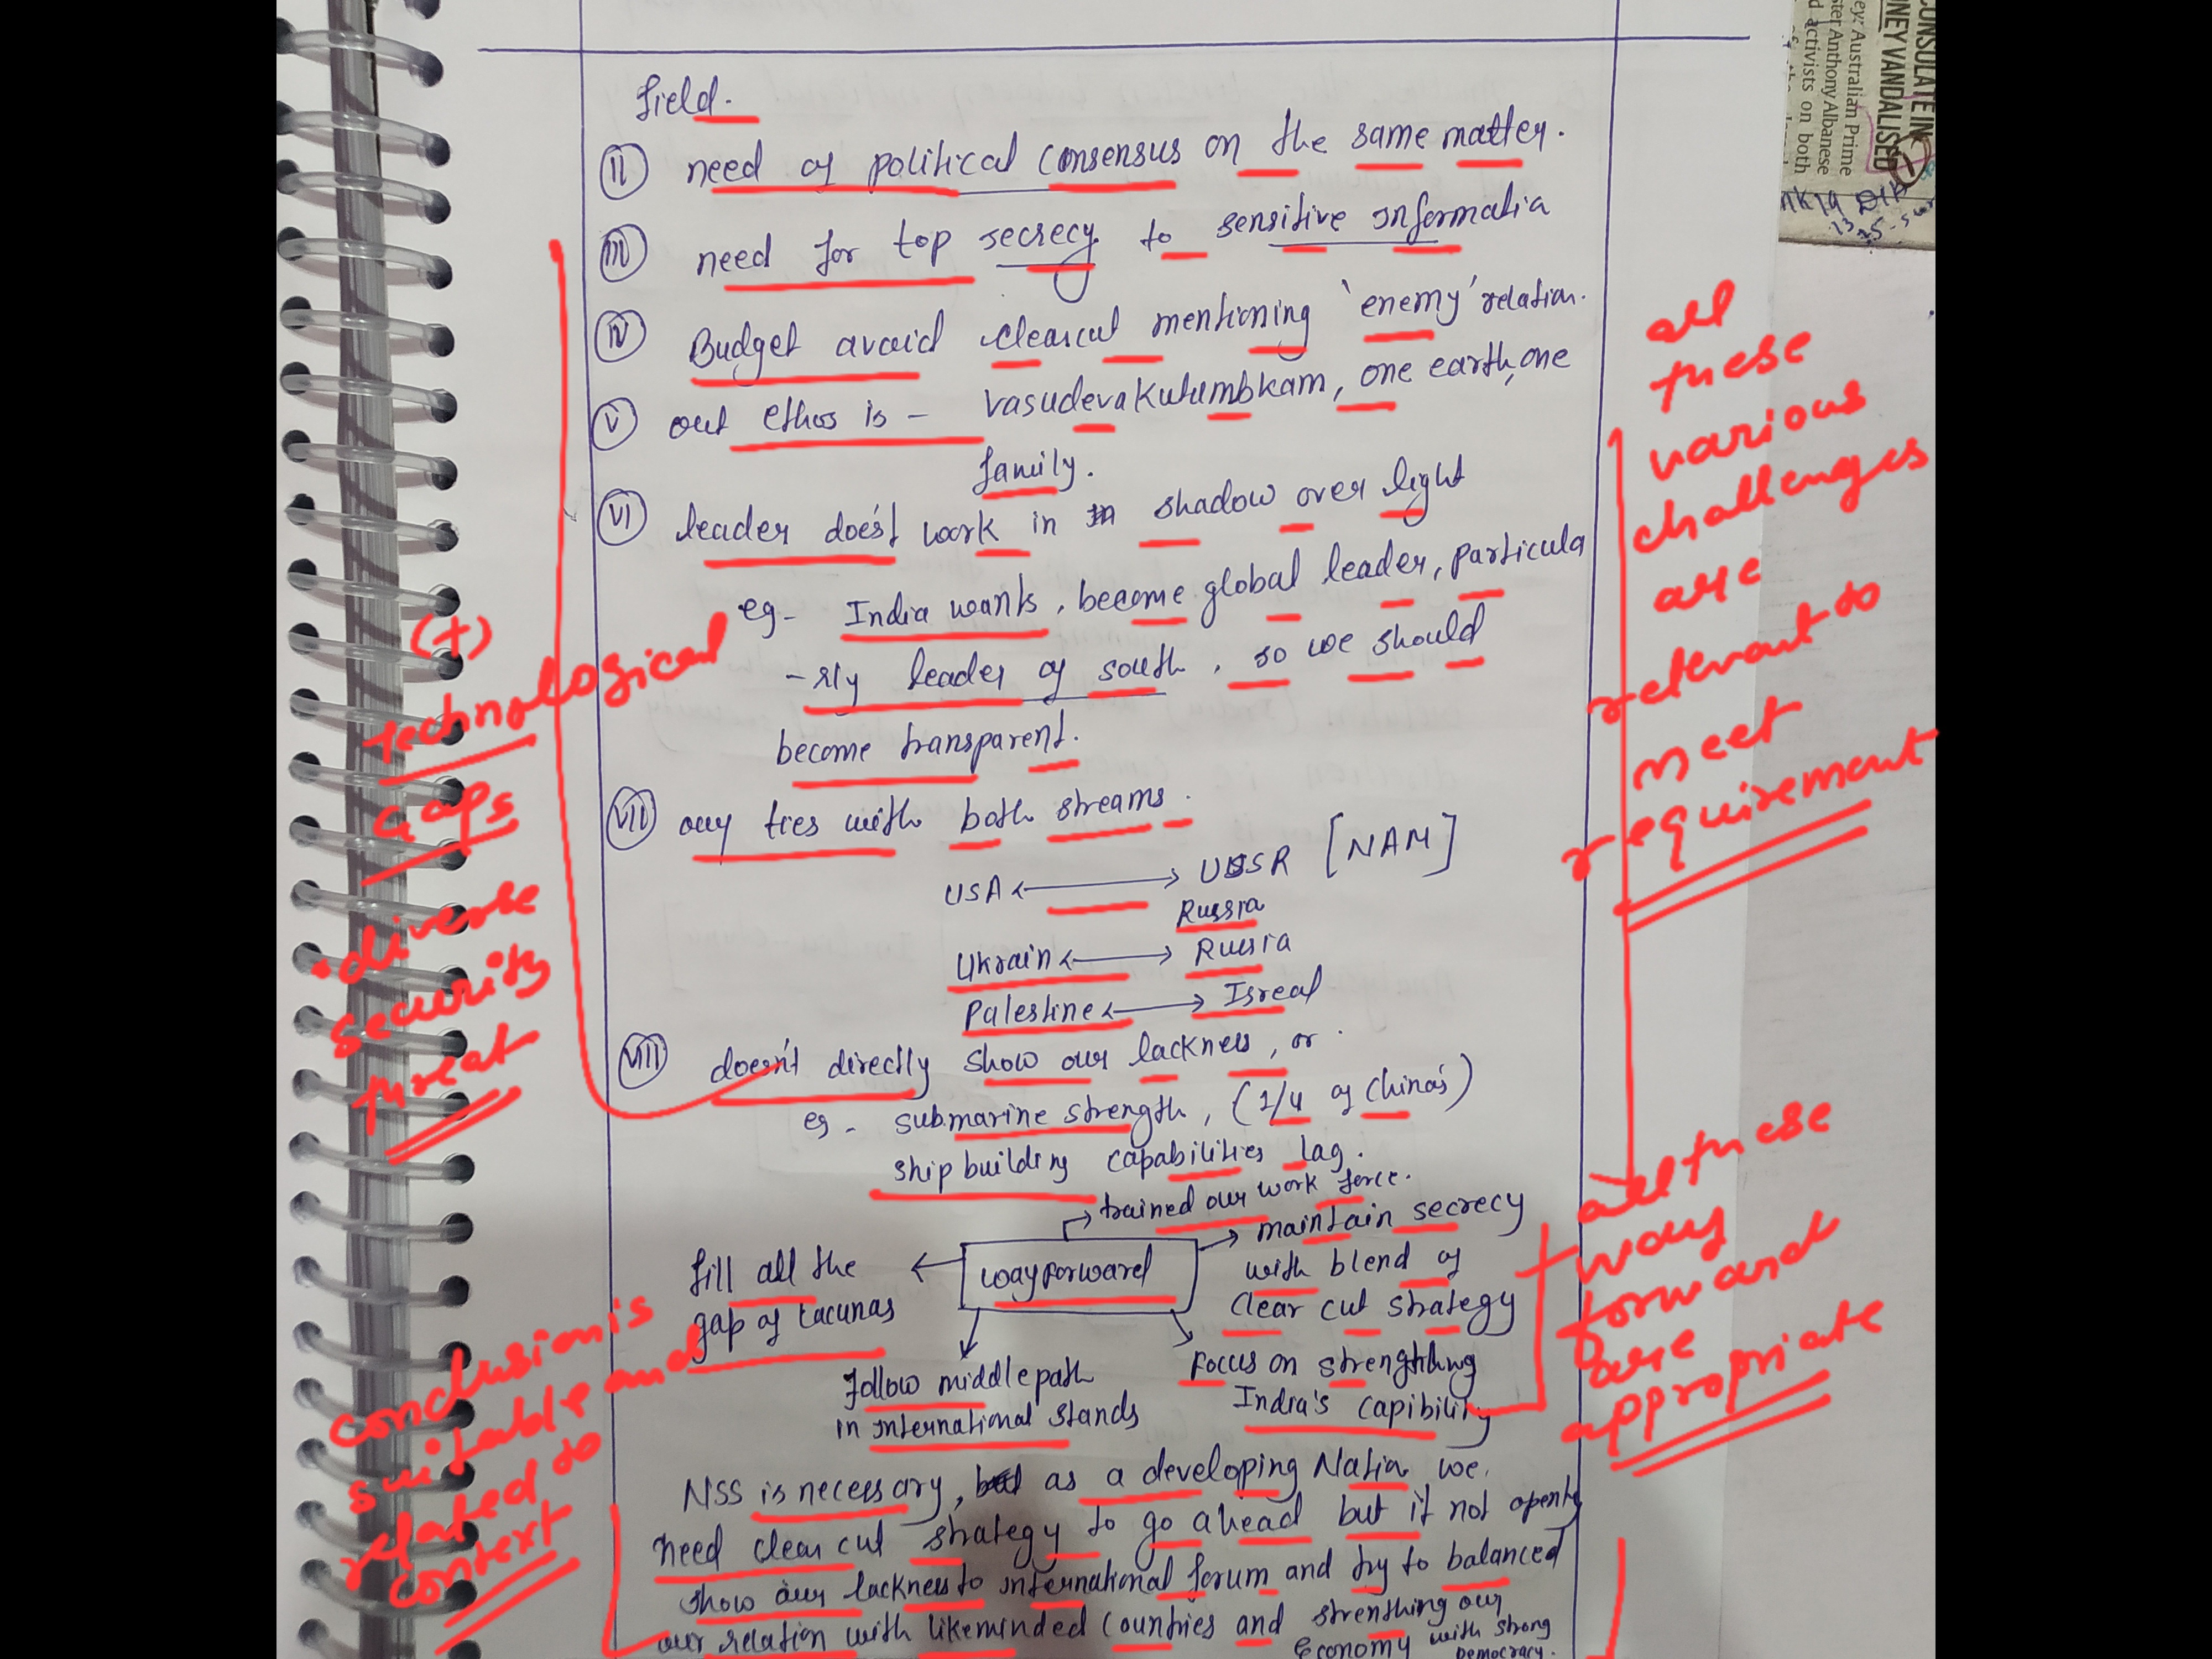 field.
(II) need of political consensus on the same matter.
(III) need for top secrecy to sensitive informatia
(IV) Budget avoid clearcut mentioning 'enemy' relation.
(V) out ethos is - Vasudevakutumbkam, one earth, one
family.
(VI) leader does't work in shadow over light
eg- India wants, become global leader, particula
-rly leader of south, so we should
become transparent.
(VII) our ties with both streams.
USA <-> USSR [NAM]
Russia
Ukrain <-> Russia
Palestine <-> Isreal
(VIII) doesn't directly show our lackness, or
eg - submarine strength, (1/4 of China's)
ship building capabilities lag.
trained our work force.
wayforward
maintain secrecy
with blend of
clear cut strategy
fill all the
gap of lacunas
follow middle path
in international stands
Focus on strenghthing
India's capibility
NSS is necessary, as a developing Natia we
need clear cut strategy to go ahead but it not openly
show our lackness to international forum and try to balanced
our relation with likeminded countries and strenthing our
Economy with strong
Democracy.
(+)
technological
Gaps
• diverse
security
threat
conclusion is
suitable and
related to
context
all
these
various
challenges
are
relevant to
meet
requirement
all these
way
forward
are
appropriate
CONSULATE IN
NEY VANDALISED
ey: Australian Prime
ster Anthony Albanese
d activists on both